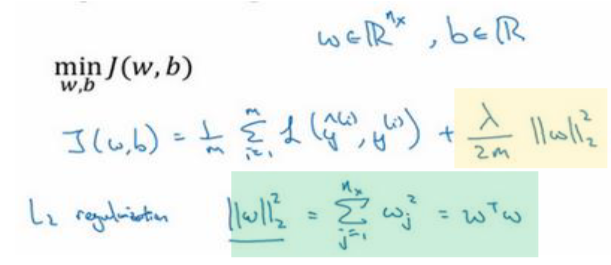 w ∈ ℝ^{n_x} , b ∈ ℝ
min_{w,b} J(w, b)
J(w,b) = 1/m Σ_{i=1}^{m} L(ŷ^{(i)}, y^{(i)}) + λ/2m ||w||_2^2
L_2 regularization ||w||_2^2 = Σ_{j=1}^{n_x} w_j^2 = w^T w